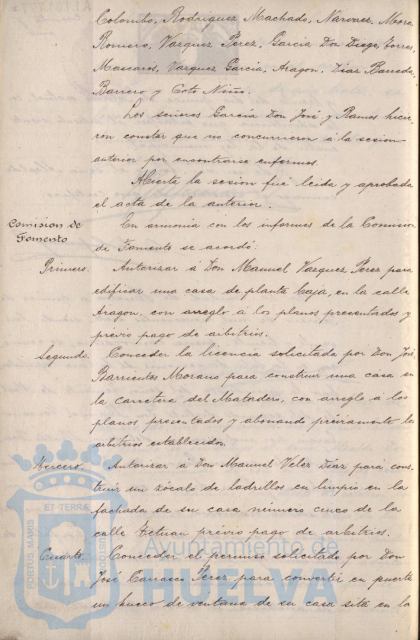 Colombo, Rodriguez Machado, Narvaez, Mora
Romero, Vazquez Perez, Garcia Don Diego, Torres,
Mascaros, Vazquez Garcia, Aragon, Diaz Barreda
Barrero y Coto Niño.
Los señores Garcia Don José y Ramos hicie-
ron constar que no concurrieron á la sesion
anterior por encontrarse enfermos.
Abierta la sesion fué leida y aprobada
el acta de la anterior.
Comision de
Fomento
En armonia con los informes de la Comision
de Fomento se acordó:
Primero. Autorizar á Don Manuel Vazquez Perez para
edificar una casa de planta baja, en la calle
Aragon, con arreglo á los planos presentados y
prévio pago de arbitrios.
Segundo. Conceder la licencia solicitada por Don José
Barrientos Morano para construir una casa en
la carretera del Matadero, con arreglo á los
planos presentados y abonando préviamente los
arbitrios establecidos.
Tercero. Autorizar á Don Manuel Velez Diaz para cons-
truir un zócalo de ladrillos en limpio en la
fachada de su casa número cinco de la
calle Tetuan prévio pago de arbitrios.
Cuarto. Conceder el permiso solicitado por Don
José Carrasco Perez para convertir en puerta
un hueco de ventana de su casa sita en la
Ayuntamiento de
HUELVA
PORTUS MARIS
ET TERRÆ
CUSTODIA